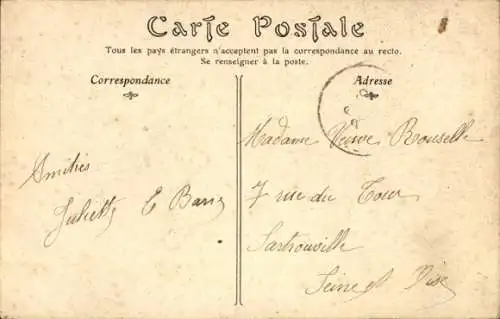 Carte Postale
Tous les pays étrangers n'acceptent pas la correspondance au recto.
Se renseigner à la poste.
Correspondance
Adresse
Madame Veuve Rouselle
Amitiés
7 rue du Tour
Juliette E Barry
Sartrouville
Seine et Oise